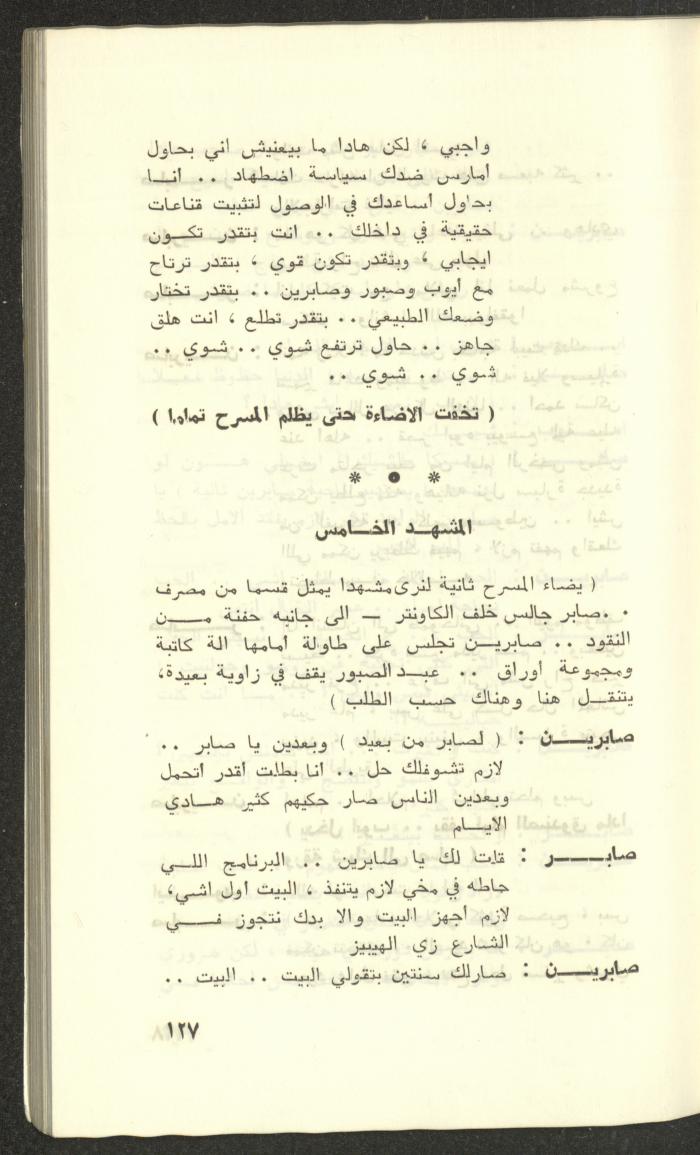 واجبي ، لكن هادا ما بيعنيش اني بحاول
أمارس ضدك سياسة اضطهاد .. أنـا
بحاول أساعدك في الوصول لتثبيت قناعات
حقيقية في داخلك .. انت بتقدر تكـون
ايجابي ، وبتقدر تكون قوي ، بتقدر ترتاح
مع أيوب وصبور وصابرين .. بتقدر تختار
وضعك الطبيعي .. بتقدر تطلع ، انت هلق
جاهز .. حاول ترتفع شوي .. شوي ..
شوي .. شوي ..
( تخفت الاضاءة حتى يظلم المسرح تماما )
المشهـد الخـامس
( يضاء المسرح ثانية لنرى مشهدا يمثل قسما من مصرف
. .صابر جالس خلف الكاونتر — الى جانبه حفنة مــن
النقود .. صابريـن تجلس على طاولة أمامها الة كاتبة
ومجموعة أوراق .. عبـد الصبور يقف في زاوية بعيدة،
يتنقـل هنا وهناك حسب الطلب )
صابريــن : ( لصابر من بعيد ) وبعدين يا صابر ..
لازم تشوفلك حل .. أنا بطلت أقدر أتحمل
وبعدين الناس صار حكيهم كثير هـادي
الايـام
صابــــر : قلت لك يا صابرين .. البرنامج اللـي
حاطه في مخي لازم يتنفذ ، البيت أول اشي،
لازم أجهز البيت والا بدك نتجوز فــي
الشارع زي الهيبيز
صابريــن : صارلك سنتين بتقولي البيت .. البيت ..
١٢٧